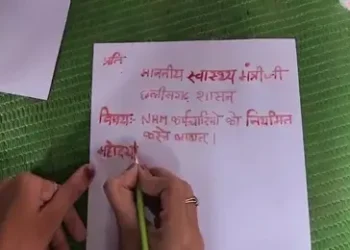 प्रति
माननीय स्वास्थ्य मंत्री जी
छत्तीसगढ़ शासन
विषय:- NHM कर्मचारियों को नियमित
करने बाबत् ।
महोदय